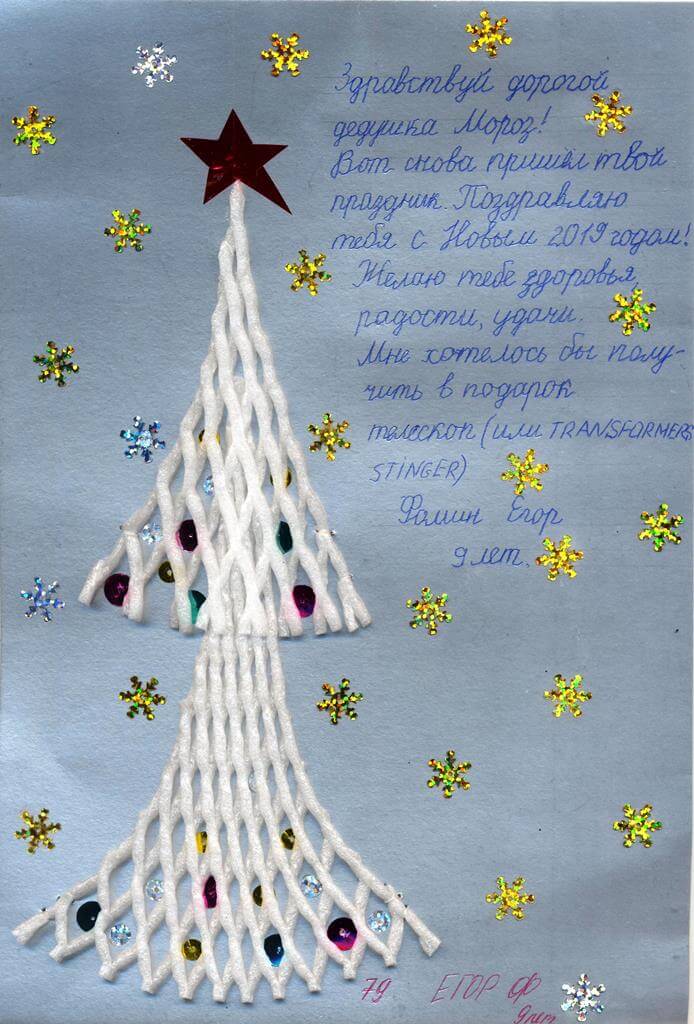 Здравствуй дорогой
дедушка Мороз!
Вот снова пришёл твой
праздник. Поздравляю
тебя с Новым 2019 годом!
Желаю тебе здоровья,
радости, удачи.
Мне хотелось бы полу-
чить в подарок
телескоп (или TRANSFORMERS
STINGER)
Фомин Егор
9 лет.
79 ЕГОР Ф
9 лет